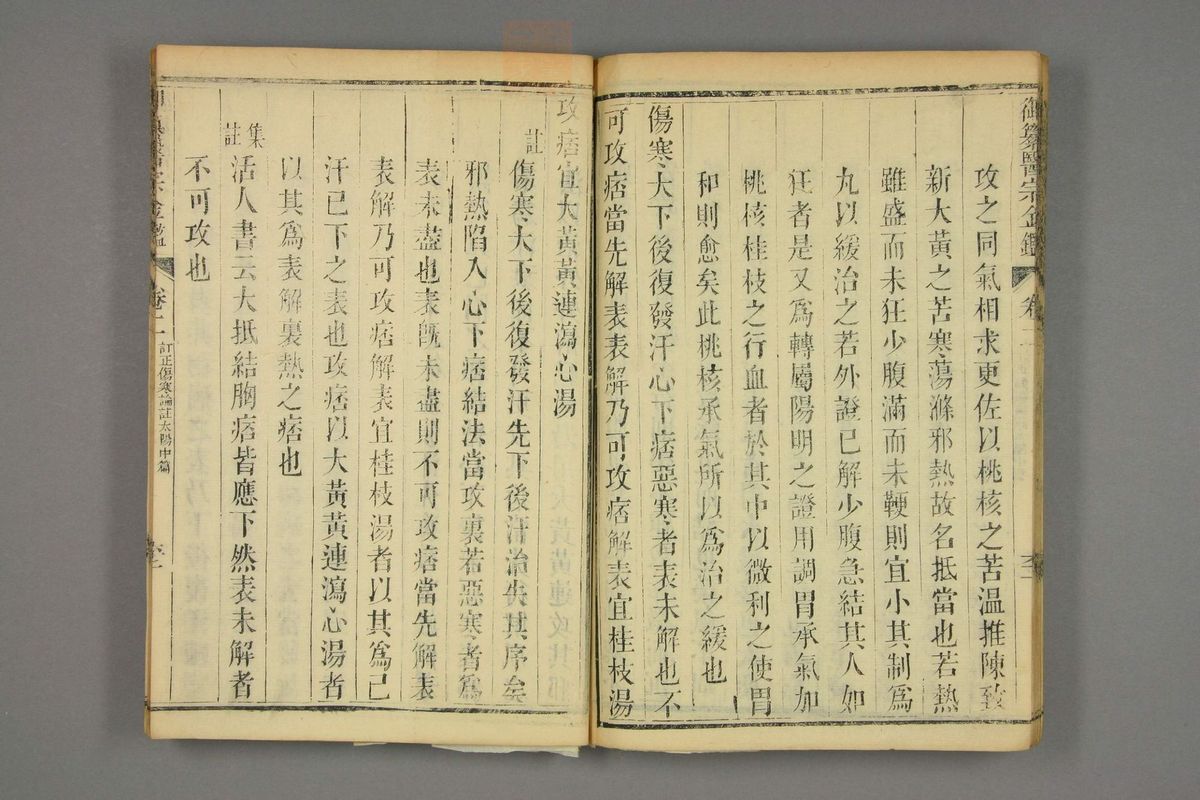 御纂醫宗金鑑
卷二
攻之同氣相求更佐以桃核之苦溫推陳致
新大黃之苦寒蕩滌邪熱故名抵當也若熱
雖盛而未狂少腹滿而未鞕則宜小其制爲
丸以緩治之若外證已解少腹急結其人如
狂者是又爲轉屬陽明之證用調胃承氣加
桃核桂枝之行血者於其中以微利之使胃
和則愈矣此桃核承氣所以爲治之緩也
傷寒大下後復發汗心下痞惡寒者表未解也不
可攻痞當先解表表解乃可攻痞解表宜桂枝湯
攻痞宜大黃黃連瀉心湯
註
傷寒大下後復發汗先下後汗治失其序矣
邪熱陷入心下痞結法當攻裏若惡寒者爲
表未盡也表旣未盡則不可攻痞當先解表
表解乃可攻痞解表宜桂枝湯者以其爲已
汗已下之表也攻痞以大黃黃連瀉心湯者
以其爲表解裏熱之痞也
集註
活人書云大抵結胸痞皆應下然表未解者
不可攻也
醫宗金鑑
卷二
訂正傷寒論註太陽中篇